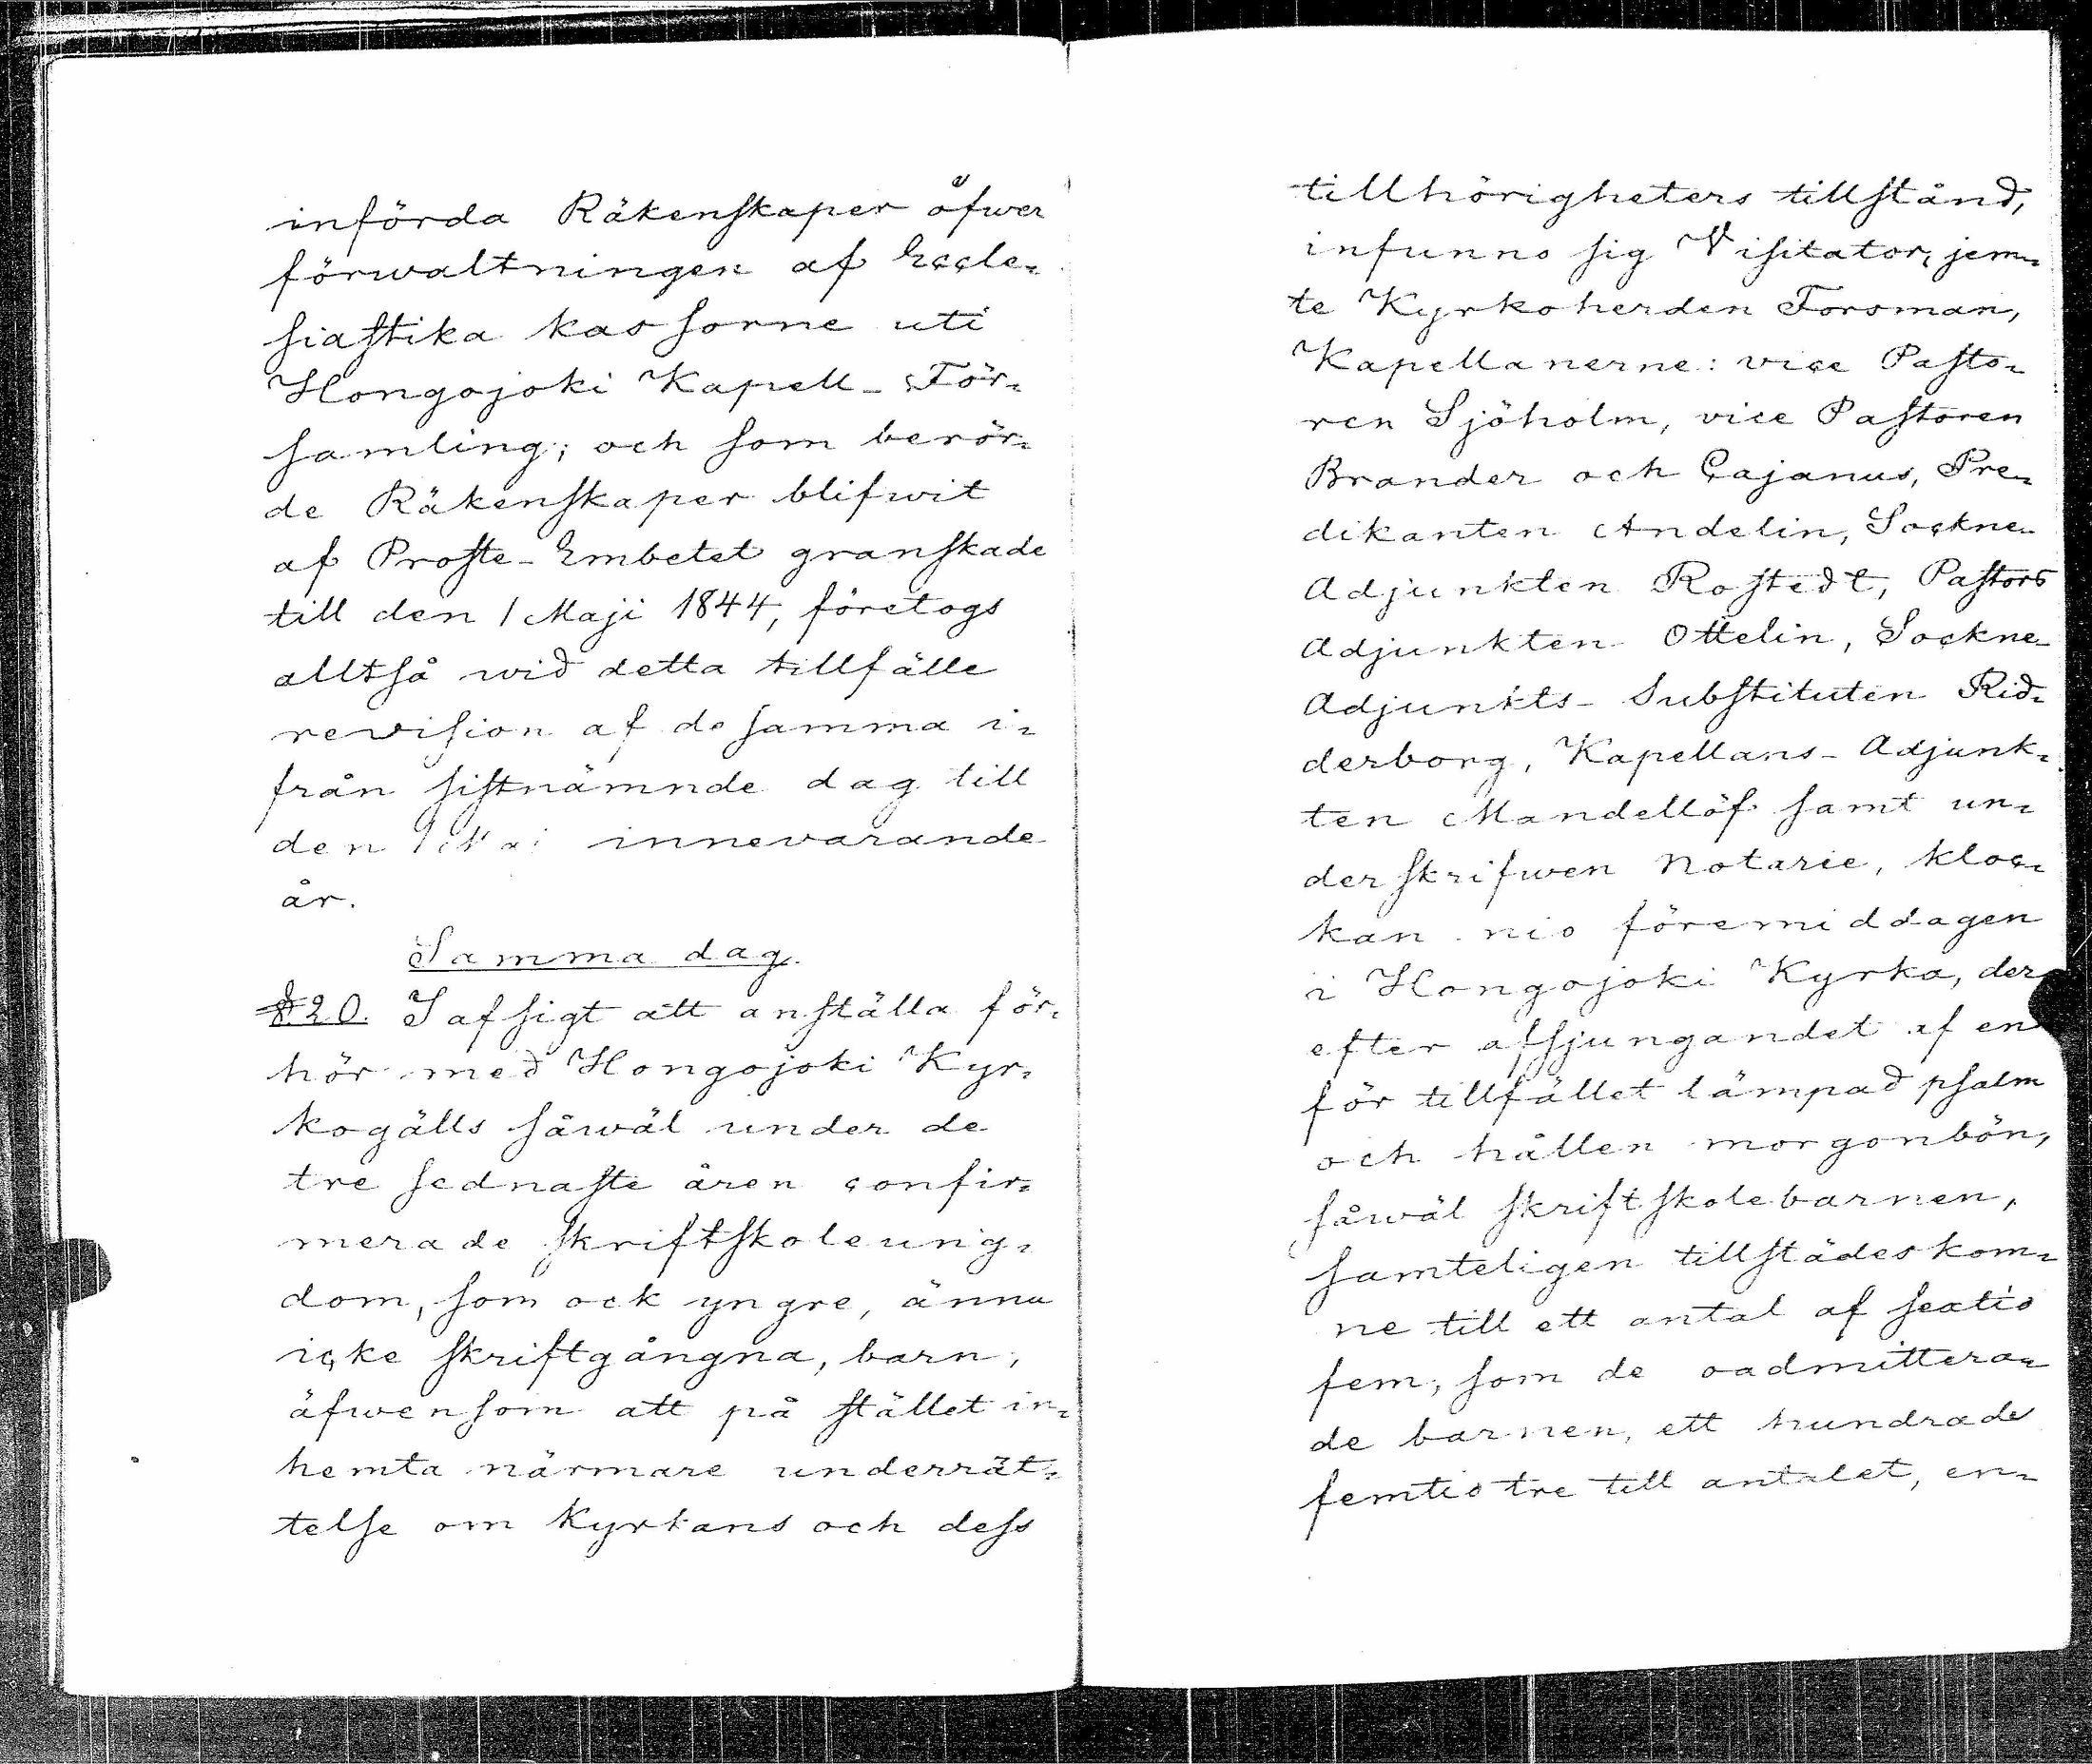 införda Räkenskaper öfwer
förwaltningen af Eccle-
siastika kassorne uti
Hongojoki Kapell-För-
samling; och som berör-
de Räkenskaper blifwit
af Proste-Embetet granskade
till den 1 Maji 1844, företogs
alltså wid detta tillfälle
revision af desamma i-
från sistnämnde dag till
den 1 Mai innevarande
år.
Samma dag.
§20. I afsigt att anställa för-
hör med Hongojoki Kyr-
kogälls såwäl under de
tre sednaste åren confir-
merade skriftskoleung-
dom, som ock yngre, ännu
icke skriftgångna, barn,
äfwensom att på stället in-
hemta närmare underrät-
telse om Kyrkans och dess
tillhörigheters tillstånd,
infunno sig Visitator, jem-
te Kyrkoherden Forsman,
Kapellanerne: vice Pasto-
ren Sjöholm, vice Pastoren
Brander och Cajanus, Pre-
dikanten Andelin, Sockne-
Adjunkten Rostedt, Pastors
Adjunkten Ottelin, Sockne-
Adjunkts-Substituten Rid-
derborg, Kapellans-Adjunk-
ten Mandellöf samt un-
derskrifwen Notarie, kloc-
kan nio föremiddagen
i Hongojoki Kyrka, der
efter afsjungandet af en
för tillfället lämpad psalm
och hållen morgonbön,
såwäl skriftskolebarnen,
samteligen tillstädeskom-
ne till ett antal af sextio
fem, som de oadmittera-
de barnen, ett hundrade
femtiotre till antalet, en-